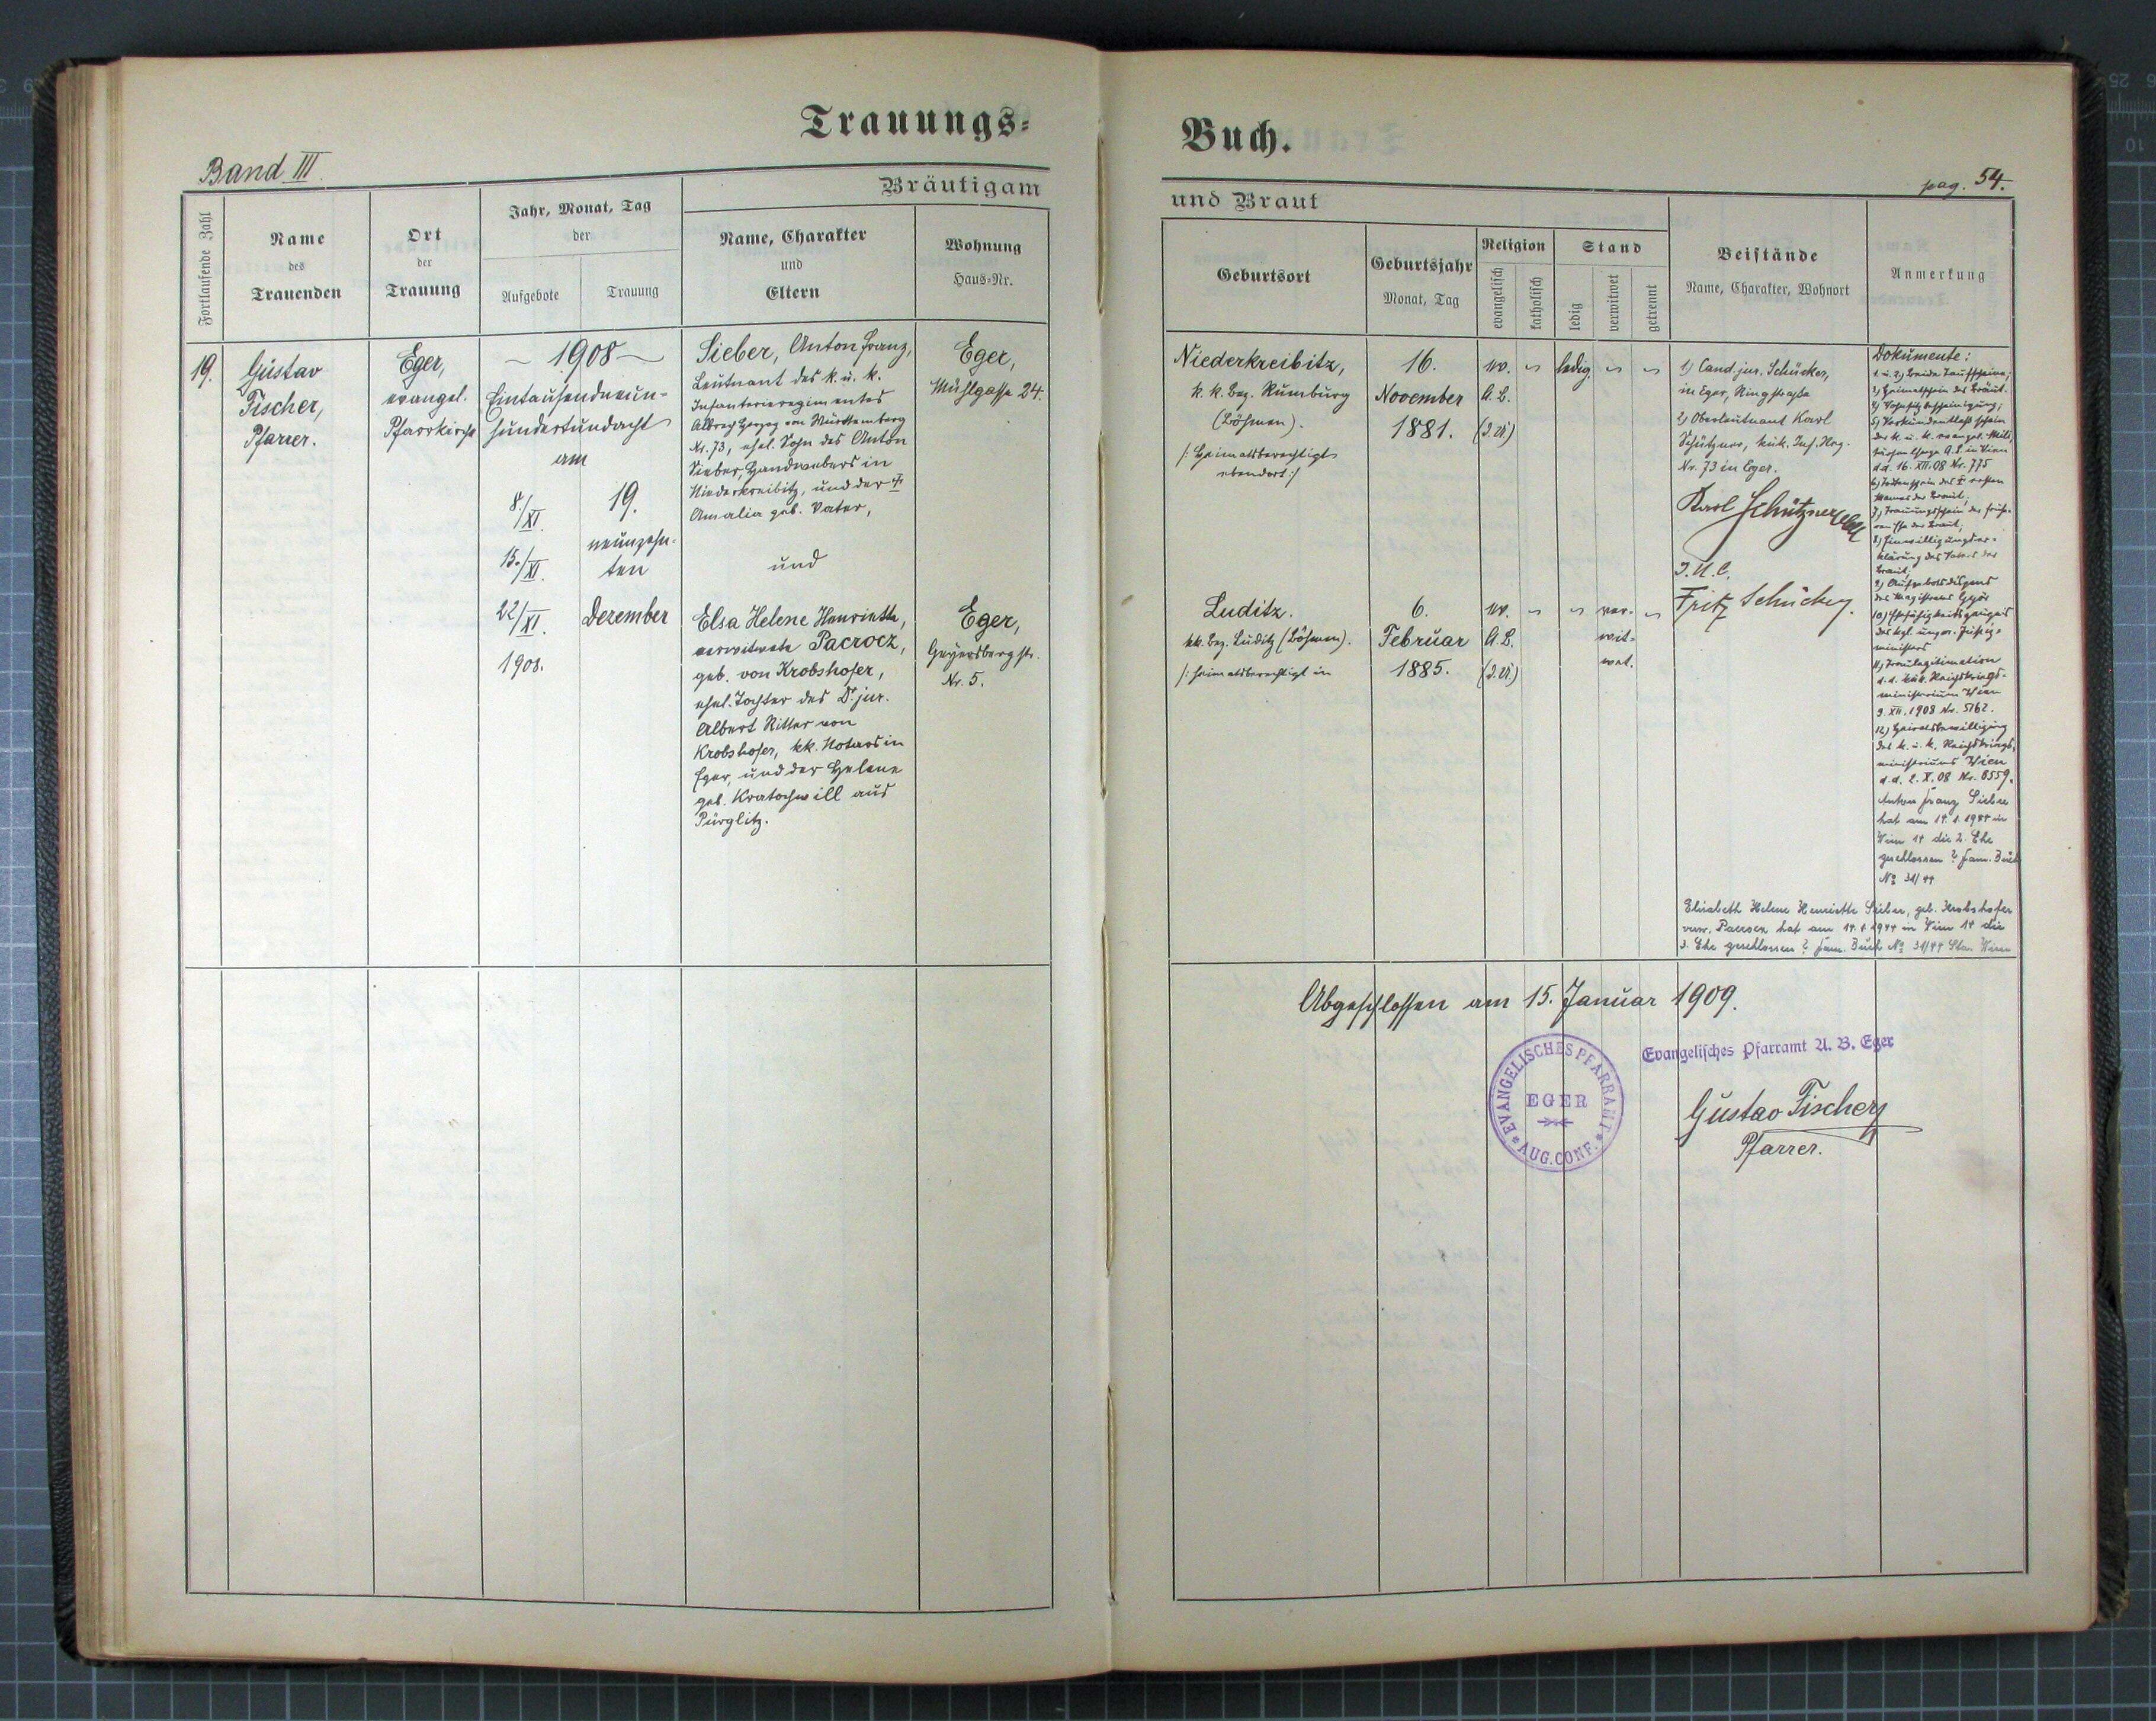 Trauungs-
Buch.
Band III.
pag. 54.
Bräutigam
und Braut
Fortlaufende Zahl
Name
des
Trauenden
Ort
der
Trauung
Jahr, Monat, Tag
der
Aufgebote
Trauung
Name, Charakter
und
Eltern
Wohnung
Haus-Nr.
Geburtsort
Geburtsjahr
Monat, Tag
Religion
evangelisch
katholisch
Stand
ledig
verwitwet
getrennt
Beistände
Name, Charakter, Wohnort
Anmerkung
19.
Gustav
Fischer,
Pfarrer.
Eger,
evangel.
Pfarrkirche
1908
Eintausendneun-
hundertundacht
am
8./XI.
15./XI.
22/XI.
1908.
19.
neunzehn-
ten
Dezember
Sieber, Anton Franz,
Leutnant des k. u. k.
Infanterieregimentes
Albrecht Herzog von Württemberg
Nr. 73, ehel. Sohn des Anton
Sieber, Handwebers in
Niederkreibitz, und der †
Amalia geb. Vater,
und
Elsa Helene Henriette,
verwitwete Pacrocz,
geb. von Krobshofer,
ehel. Tochter des Dr. jur.
Albert Ritter von
Krobshofer, kk. Notars in
Eger, und der Helene
geb. Kratochwill aus
Pürglitz.
Eger,
Mühlgasse 24.
Eger,
Geyersbergstr.
Nr. 5.
Niederkreibitz,
k. k. Bez. Rumburg
(Böhmen).
/: Heimatsberechtigt
ebendort :/
16.
November
1881.
ev.
A. B.
ledig
1) Cand. jur. Schücker,
in Eger, Ringstraße
2) Oberleutnant Karl
Schützner, kuk. Inf. Reg.
Nr. 73 in Eger.
Karl Schützner
J. U. C.
Fritz Schücker.
Luditz.
kk. Bez. Luditz (Böhmen).
/: heimatsberechtigt in
6.
Februar
1885.
ev.
A. B.
ver-
wit-
wet.
Dokumente:
1. u. 2) beide Taufscheine;
3) Heimatschein des Bräut.
5) Verkündentlaßschein
des k. u. k. evangel. Mili-
tärseelsorge A. B. in Wien
d.d. 16. XII. 08 Nr. 775
6) Totenschein des I ersten
Mannes der Braut;
7) Trauungsschein der frühe-
ren Ehe der Braut;
8) Einwilligungser-
klärung des Vaters der
Braut;
9) Aufgebotsdispens
des Magistrates Györ
10) Ehefähigkeitszeugnis
des kgl. ungar. Justiz-
ministers
11) Traulegitimation
d. d. kuk. Reichskriegs-
ministerium Wien
9. XII. 1908 Nr. 5162.
12) Heiratsbewilligung
des k. u. k. Reichskriegs-
ministeriums Wien
d. d. 2. X. 08 Nr. 6559.
Anton Franz Sieber
hat am 14. 1. 1944 in
Wien 14 die 2. Ehe
geschlossen ? Fam. Buch
No 31/44
Elisabeth Helene Henriette Sieber, geb. Krobshofer
verw. Pacrocz hat am 14. 1. 1944 in Wien 14 die
3. Ehe geschlossen ? Fam. Buch No 31/44 Sta. Wien
Abgeschlossen am 15. Januar 1909.
EVANGELISCHES PFARRAMT
EGER
AUG. CONF.
Evangelisches Pfarramt A. B. Eger
Gustav Fischer
Pfarrer.